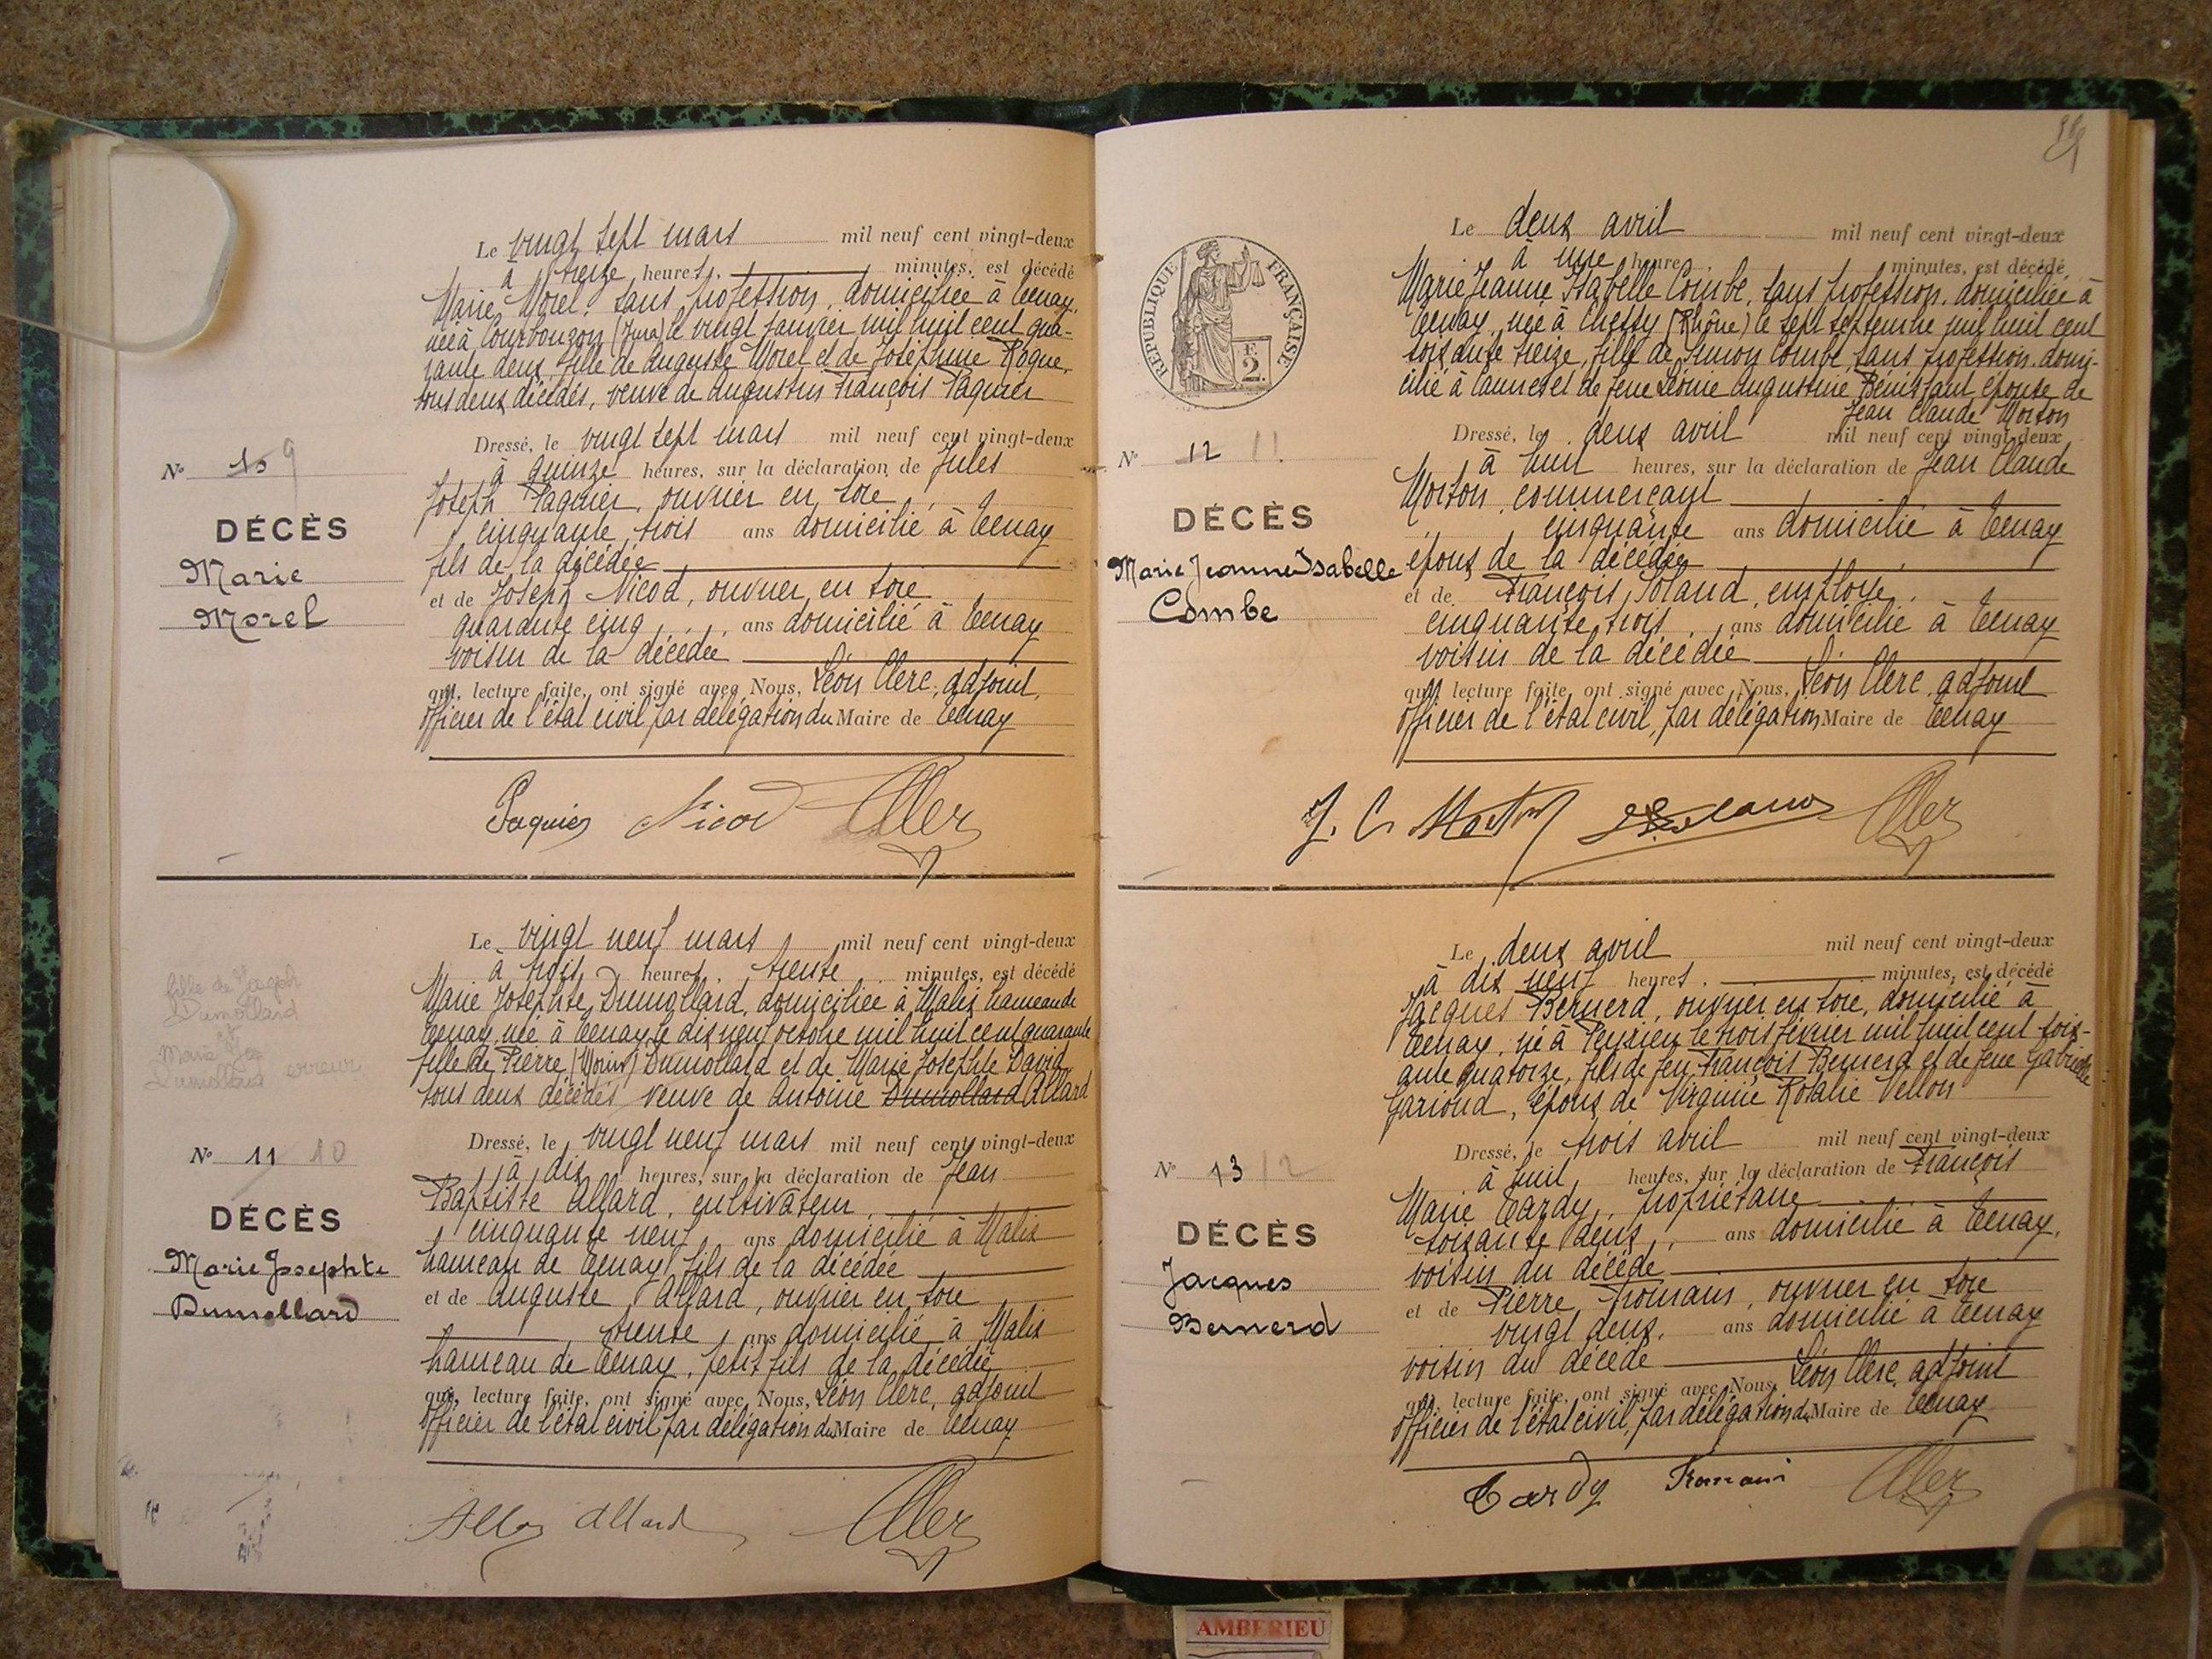 Le vingt sept mars mil neuf cent vingt-deux
à treize heures, minutes, est décédé
Marie Morel, sans profession, domiciliée à Tenay,
née à Courbouzon (Jura) le vingt janvier mil huit cent qua-
rante deux, fille de Auguste Morel et de Joséphine Rogue,
tous deux décédés, veuve de Augustin François Paquier
Dressé, le vingt sept mars mil neuf cent vingt-deux
à quinze heures, sur la déclaration de Jules
Joseph Paquier, ouvrier en soie,
cinquante trois ans domicilié à Tenay
fils de la décédée
et de Joseph Nicod, ouvrier en soie
quarante cinq ans domicilié à Tenay
voisin de la décédée
qui, lecture faite, ont signé avec Nous, Léon Clerc, adjoint,
officier de l'état civil par délégation du Maire de Tenay
Nº 10 9
DÉCÈS
Marie
Morel
Paquier Nicod Clerc
fille de Joseph
Dumollard
et
Marie Jos
Dumollard erreur
Le vingt neuf mars mil neuf cent vingt-deux
à trois heures, trente minutes, est décédé
Marie Josephte Dumollard, domiciliée à Malix hameau de
Tenay, née à Tenay le dix neuf octobre mil huit cent quarante
fille de Pierre (Morin) Dumollard et de Marie Josephte David,
tous deux décédés, veuve de Antoine Dumollard Allard
Dressé, le vingt neuf mars mil neuf cent vingt-deux
à dix heures, sur la déclaration de Jean
Baptiste Allard, cultivateur,
cinquante neuf ans domicilié à Malix
hameau de Tenay, fils de la décédée
et de Auguste Allard, ouvrier en soie
trente ans domicilié à Malix
hameau de Tenay, petit fils de la décédée
qui, lecture faite, ont signé avec Nous, Léon Clerc, adjoint
officier de l'état civil par délégation du Maire de Tenay
Nº 11 10
DÉCÈS
Marie Josephte
Dumollard
Allard Clerc
RÉPUBLIQUE FRANÇAISE
F.
2
Le deux avril mil neuf cent vingt-deux
à une heure, minutes, est décédé
Marie Jeanne Isabelle Combe, sans profession, domiciliée à
Tenay, née à Chessy (Rhône) le sept septembre mil huit cent
soixante treize, fille de Simon Combe, sans profession, domi-
cilié à Cannes et de feue Léonie Augustine Bénissant épouse de
Jean Claude Morton
Dressé, le deux avril mil neuf cent vingt-deux
à huit heures, sur la déclaration de Jean Claude
Morton, commerçant
cinquante ans domicilié à Tenay
époux de la décédée
et de François Poland, employé,
cinquante trois ans domicilié à Tenay
voisin de la décédée
qui, lecture faite, ont signé avec Nous, Léon Clerc, adjoint
officier de l'état civil, par délégation Maire de Tenay
Nº 12 11
DÉCÈS
Marie Jeanne Isabelle
Combe
J. C. Clerc
Le deux avril mil neuf cent vingt-deux
à dix neuf heures, minutes, est décédé
Jacques Bernerd, ouvrier en soie, domicilié à
Tenay, né à Peyrieu le trois février mil huit cent soix-
ante quatorze, fils de feu François Bernerd et de feue Gabrielle
Garioud, époux de Virginie Rosalie Vellon
Dressé, le trois avril mil neuf cent vingt-deux
à huit heures, sur la déclaration de François
Marie Tardy, propriétaire
soixante deux ans domicilié à Tenay,
voisin du décédé
et de Pierre Tromans, ouvrier en soie
vingt deux ans domicilié à Tenay
voisin du décédé
qui, lecture faite, ont signé avec Nous, Léon Clerc, adjoint
officier de l'état civil, par délégation du Maire de Tenay
Nº 13 12
DÉCÈS
Jacques
Bernerd
Tardy Clerc
AMBERIEU